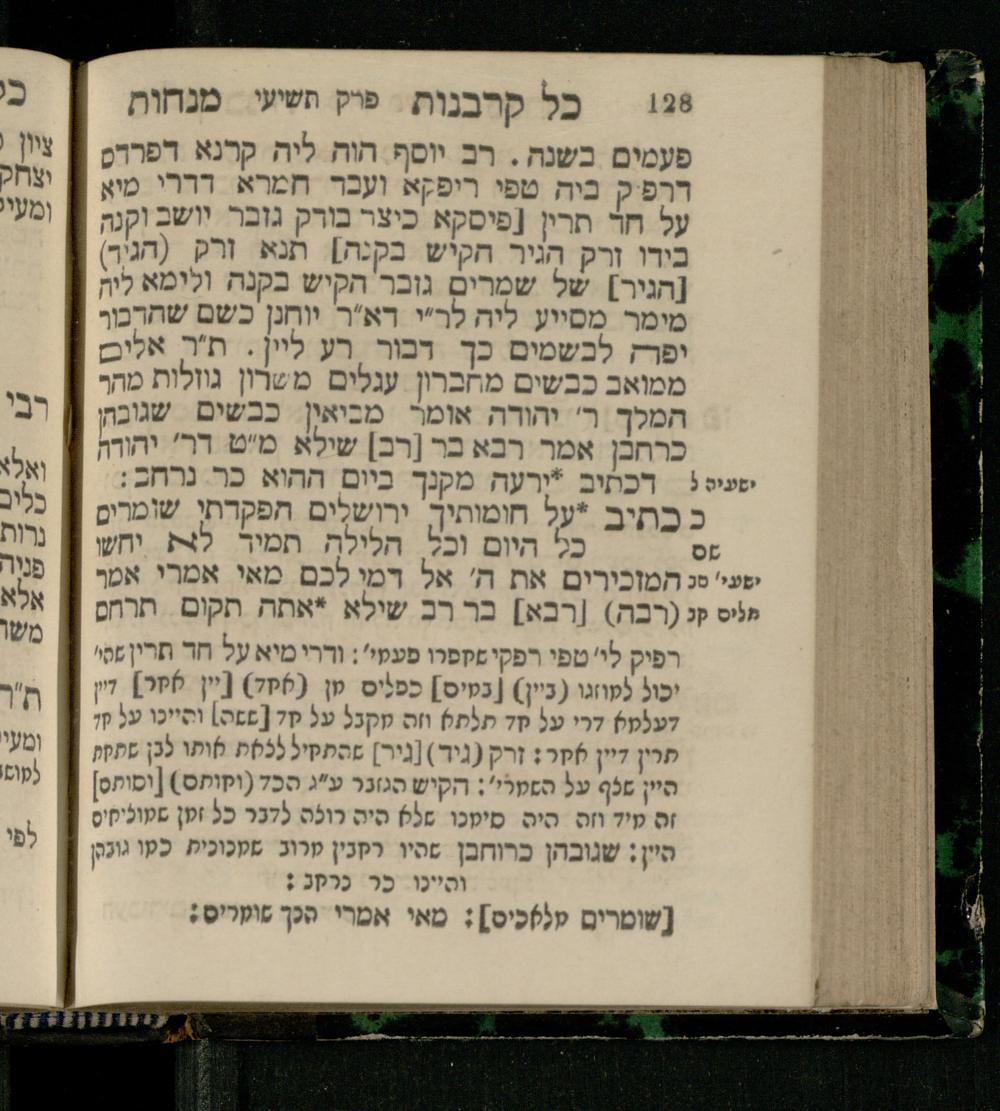 128 כל קרבנות פרק תשיעי מנחות
פעמים בשנה. רב יוסף הוה ליה קרנא דפרדס
דרפיק ביה טפי ריפקא ועבר חמרא דדרי מיא
על חד תרין [פיסקא כיצר בודק גזבר יושב וקנה
בידו זרק הגיר הקיש בקנה] תנא זרק (הגיד)
[הגיר] של שמרים גזבר הקיש בקנה ולימא ליה
מימר מסייע ליה לר״י דא״ר יוחנן כשם שהדבור
יפה לבשמים כך דבור רע ליין. ת״ר אלים
ממואב כבשים מחברון עגלים משרון גוזלות מהר
המלך ר׳ יהודה אומר מביאין כבשים שגובהן
כרחבן אמר רבא בר [רב] שילא מ״ט דר׳ יהודה
ישעיה ל דכתיב *ירעה מקנך ביום ההוא כר נרחב:
כ כתיב *על חומותיך ירושלים הפקדתי שומרים
שם כל היום וכל הלילה תמיד לא יחשו
ישעי׳ סב המזכירים את ה׳ אל דמי לכם מאי אמרי אמר
תלים קב (רבה) [רבא] בר רב שילא *אתה תקום תרחם
רפיק לי׳ טפי רפקי שחפרו פעמי׳: ודרי מיא על חד תרין שהי׳
יכול למוזגו (ביין) [במים] כפלים מן (אחד) [יין אחר] דיין
דעלמא דרי על חד תלתא וזה מקבל על חד [ששה] והיינו על חד
תרין דיין אחר: זרק (גיד) [גיר] שהתחיל לצאת אותו לבן שתחת
היין שצף על השמרי׳: הקיש הגזבר ע״ג הכד (וקותם) [וסותם]
זה מיד וזה היה סימנו שלא היה רוצה לדבר כל זמן שמוציאים
היין: שגובהן כרוחבן שהיו רחבין מרוב שמנונית כמו גובהן
והיינו כר נרחב:
[שומרים מלאכים]: מאי אמרי הנך שומרים: